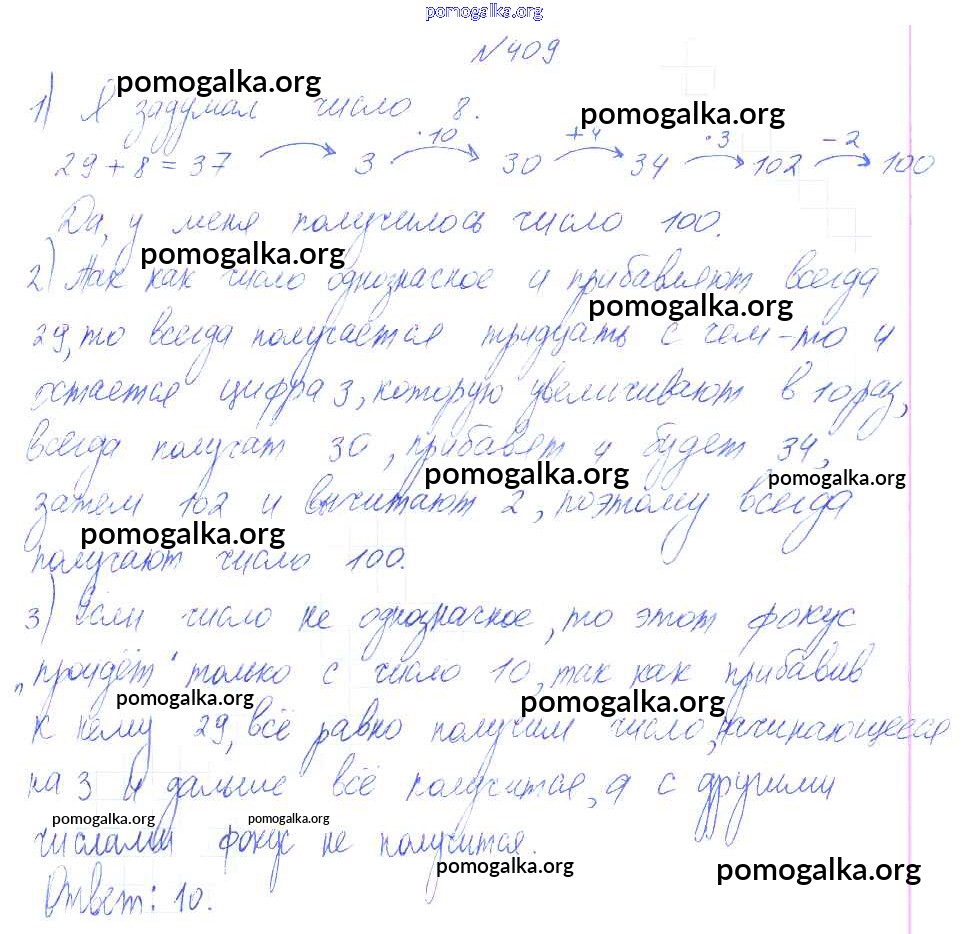 pomogalka.org
№409
pomogalka.org
1) Я задумал число 8.
pomogalka.org
·10 +4 ·3 −2
29 + 8 = 37 3 30 34 102 100
Да, у меня получилось число 100.
pomogalka.org
2) Так как число однозначное и прибавляют всегда
pomogalka.org
29, то всегда получается тридцать с чем-то и
остается цифра 3, которую увеличивают в 10 раз,
всегда получат 30, прибавят 4 будет 34,
pomogalka.org
pomogalka.org
затем 102 и вычитают 2, поэтому всегда
pomogalka.org
получают число 100.
3) Если число не однозначное, то этот фокус
„пройдёт" только с число 10, так как прибавив
pomogalka.org
pomogalka.org
к нему 29, всё равно получим число, начинающееся
на 3 и дальше всё получится, а с другими
pomogalka.org
pomogalka.org
числами фокус не получится.
pomogalka.org
pomogalka.org
Ответ: 10.